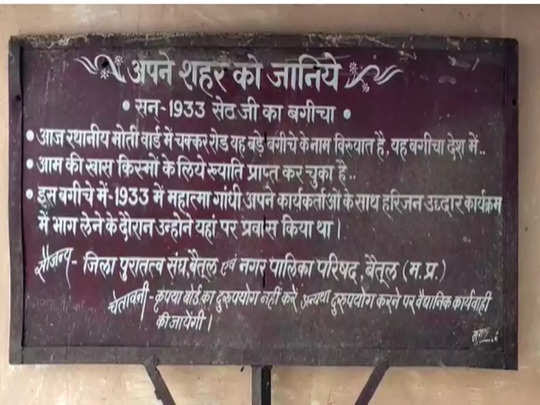 अपने शहर को जानिये
• सन-1933 सेठ जी का बगीचा •
• आज स्थानीय मोती वार्ड में चक्कर रोड यह बड़े बगीचे के नाम विख्यात है, यह बगीचा देश में..
• आम की खास किस्मों के लिये ख्याति प्राप्त कर चुका है..
• इस बगीचे में-1933 में महात्मा गांधी अपने कार्यकर्ताओं के साथ हरिजन उद्धार कार्यक्रम
में भाग लेने के दौरान उन्होने यहां पर प्रवास किया था।
सौजन्य- जिला पुरातत्व संघ, बैतूल एवं नगर पालिका परिषद, बैतूल (म.प्र.)
चेतावनी- कृपया बोर्ड का दुरुपयोग नहीं करें अन्यथा दुरुपयोग करने पर वैधानिक कार्यवाही
की जायेंगी।